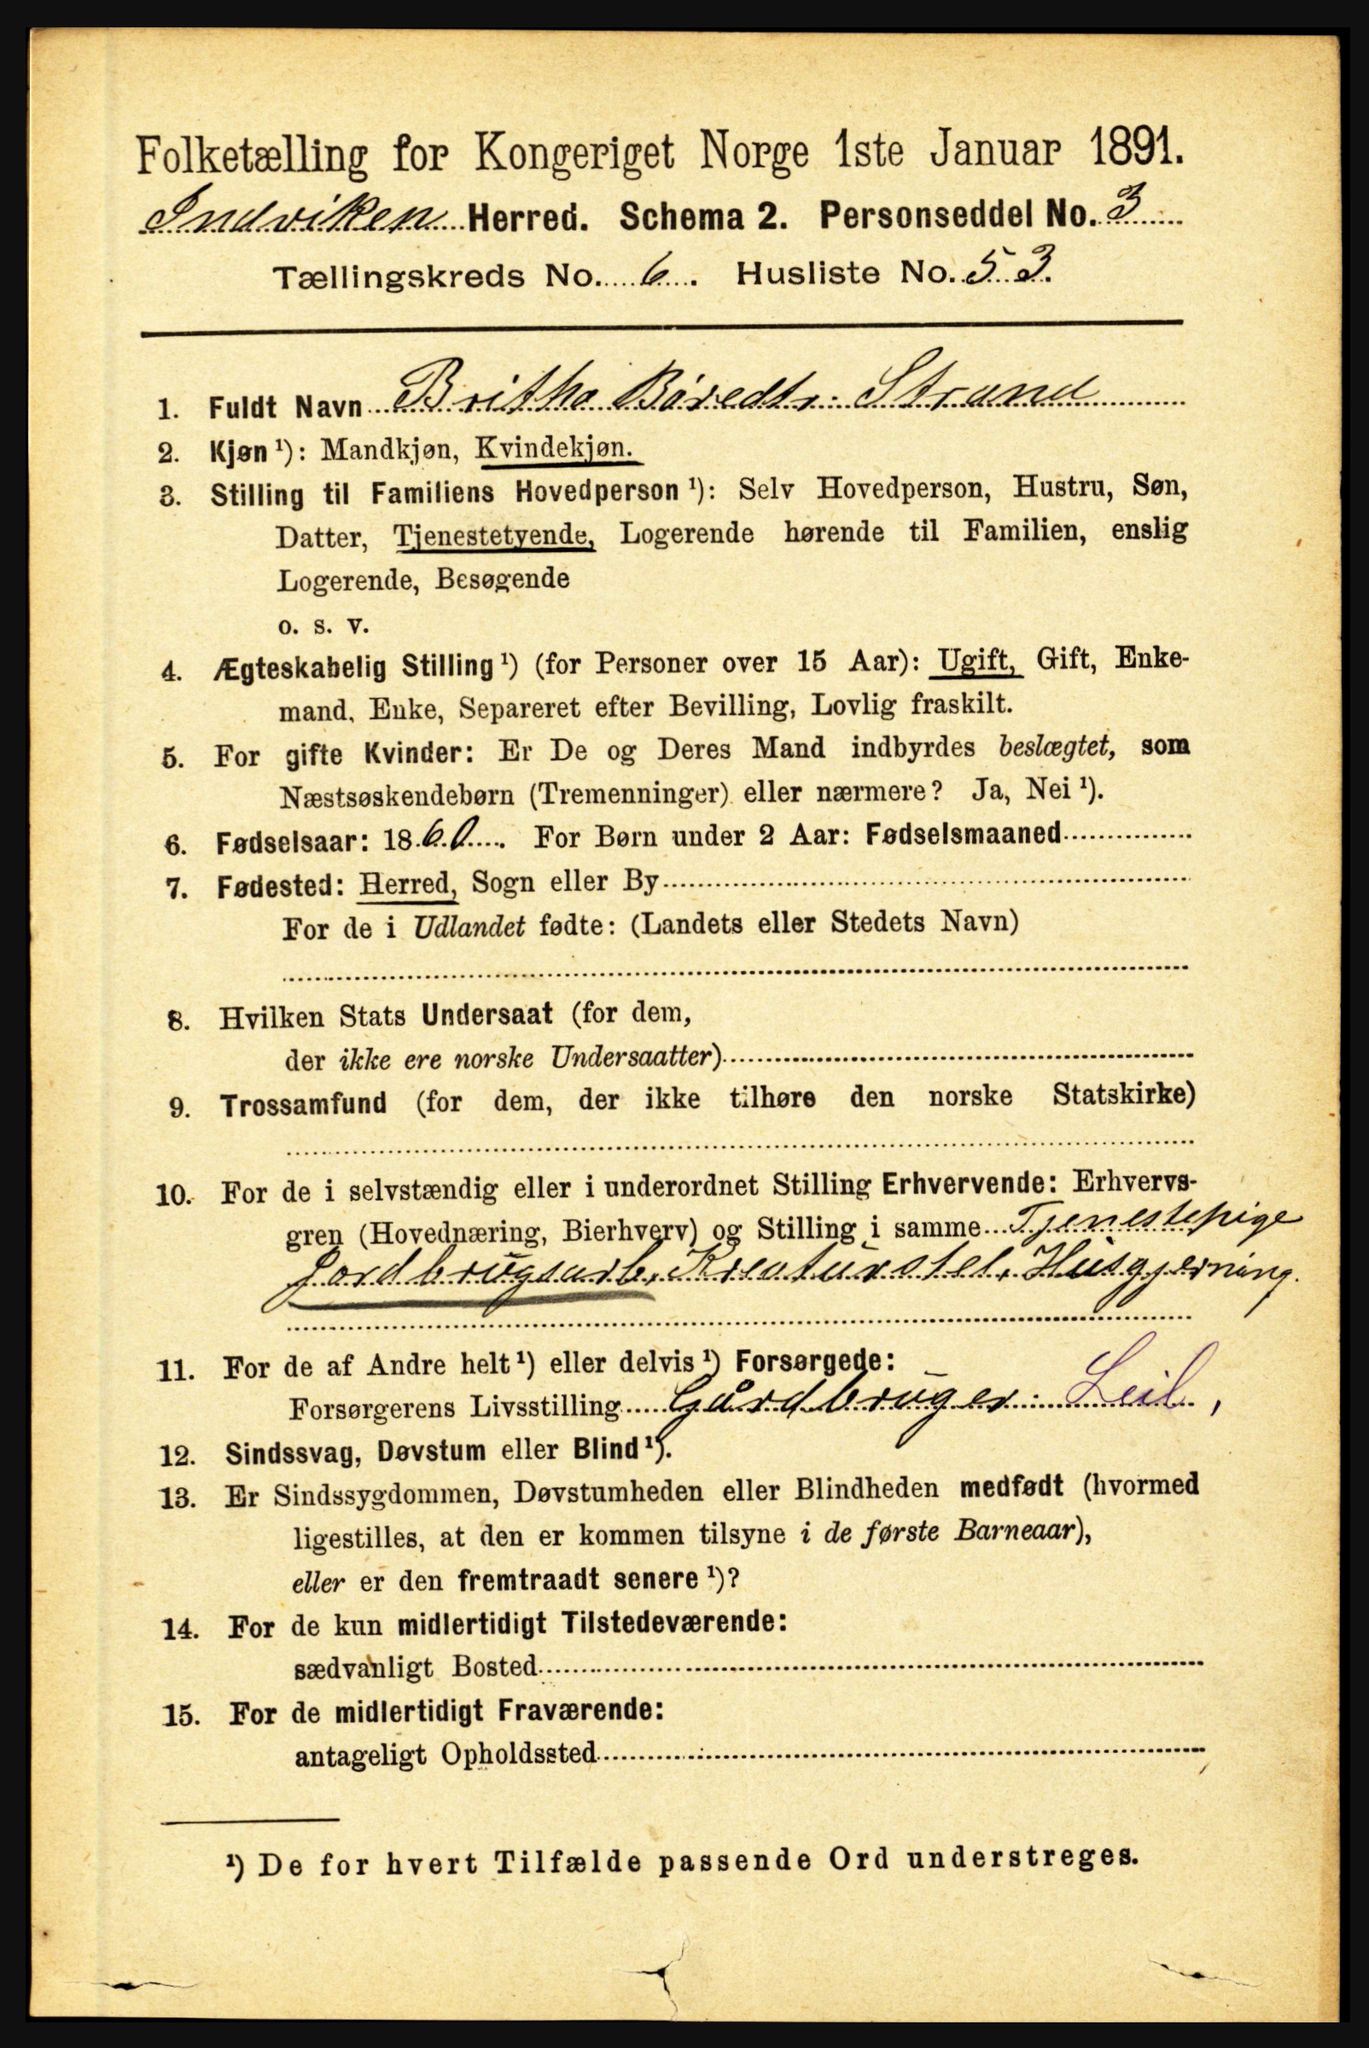 Folketælling for Kongeriget Norge 1ste Januar 1891.
Indviken Herred. Schema 2. Personseddel No. 3
Tællingskreds No. 6. Husliste No. 53.
1. Fuldt Navn Britha Båredtr. Strand
2. Kjøn ¹): Mandkjøn, Kvindekjøn.
3. Stilling til Familiens Hovedperson ¹): Selv Hovedperson, Hustru, Søn,
Datter, Tjenestetyende, Logerende hørende til Familien, enslig
Logerende, Besøgende
o. s. v.
4. Ægteskabelig Stilling ¹) (for Personer over 15 Aar): Ugift, Gift, Enke-
mand, Enke, Separeret efter Bevilling, Lovlig fraskilt.
5. For gifte Kvinder: Er De og Deres Mand indbyrdes beslægtet, som
Næstsøskendebørn (Tremenninger) eller nærmere? Ja, Nei ¹).
6. Fødselsaar: 1860. For Børn under 2 Aar: Fødselsmaaned
7. Fødested: Herred, Sogn eller By
For de i Udlandet fødte: (Landets eller Stedets Navn)
8. Hvilken Stats Undersaat (for dem,
der ikke ere norske Undersaatter)
9. Trossamfund (for dem, der ikke tilhøre den norske Statskirke)
10. For de i selvstændig eller i underordnet Stilling Erhvervende: Erhvervs-
gren (Hovednæring, Bierhverv) og Stilling i samme Tjenestepige
Jordbrugsarb., Kreaturstel, Husgjerning.
11. For de af Andre helt ¹) eller delvis ¹) Forsørgede:
Forsørgerens Livsstilling Gårdbruger. Leil,
12. Sindssvag, Døvstum eller Blind ¹).
13. Er Sindssygdommen, Døvstumheden eller Blindheden medfødt (hvormed
ligestilles, at den er kommen tilsyne i de første Barneaar),
eller er den fremtraadt senere ¹)?
14. For de kun midlertidigt Tilstedeværende:
sædvanligt Bosted
15. For de midlertidigt Fraværende:
antageligt Opholdssted
¹) De for hvert Tilfælde passende Ord understreges.